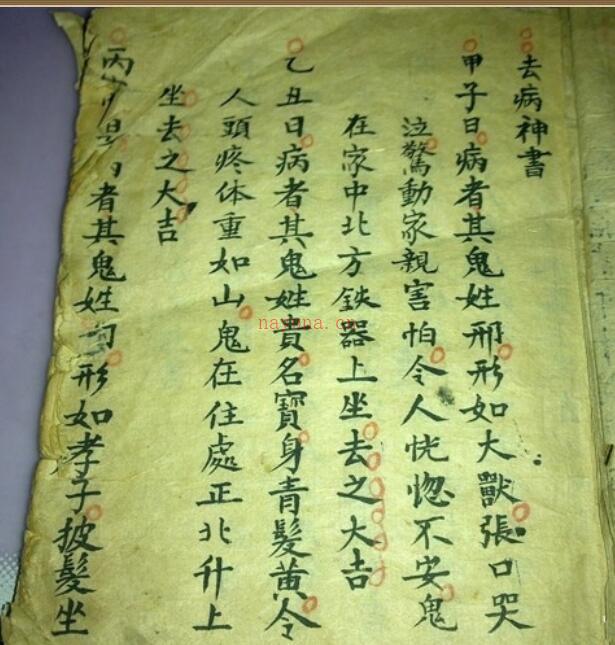 去病神書
甲子日病者其鬼姓邢形如大獸張口哭
泣驚動家親害怕令人恍惚不安鬼
在家中北方鉄器上坐去之大吉
乙丑日病者其鬼姓貴名寶身青髮黃令
人頭疼体重如山鬼在住處正北升上
坐去之大吉
丙者其鬼姓形如孝子披髮坐